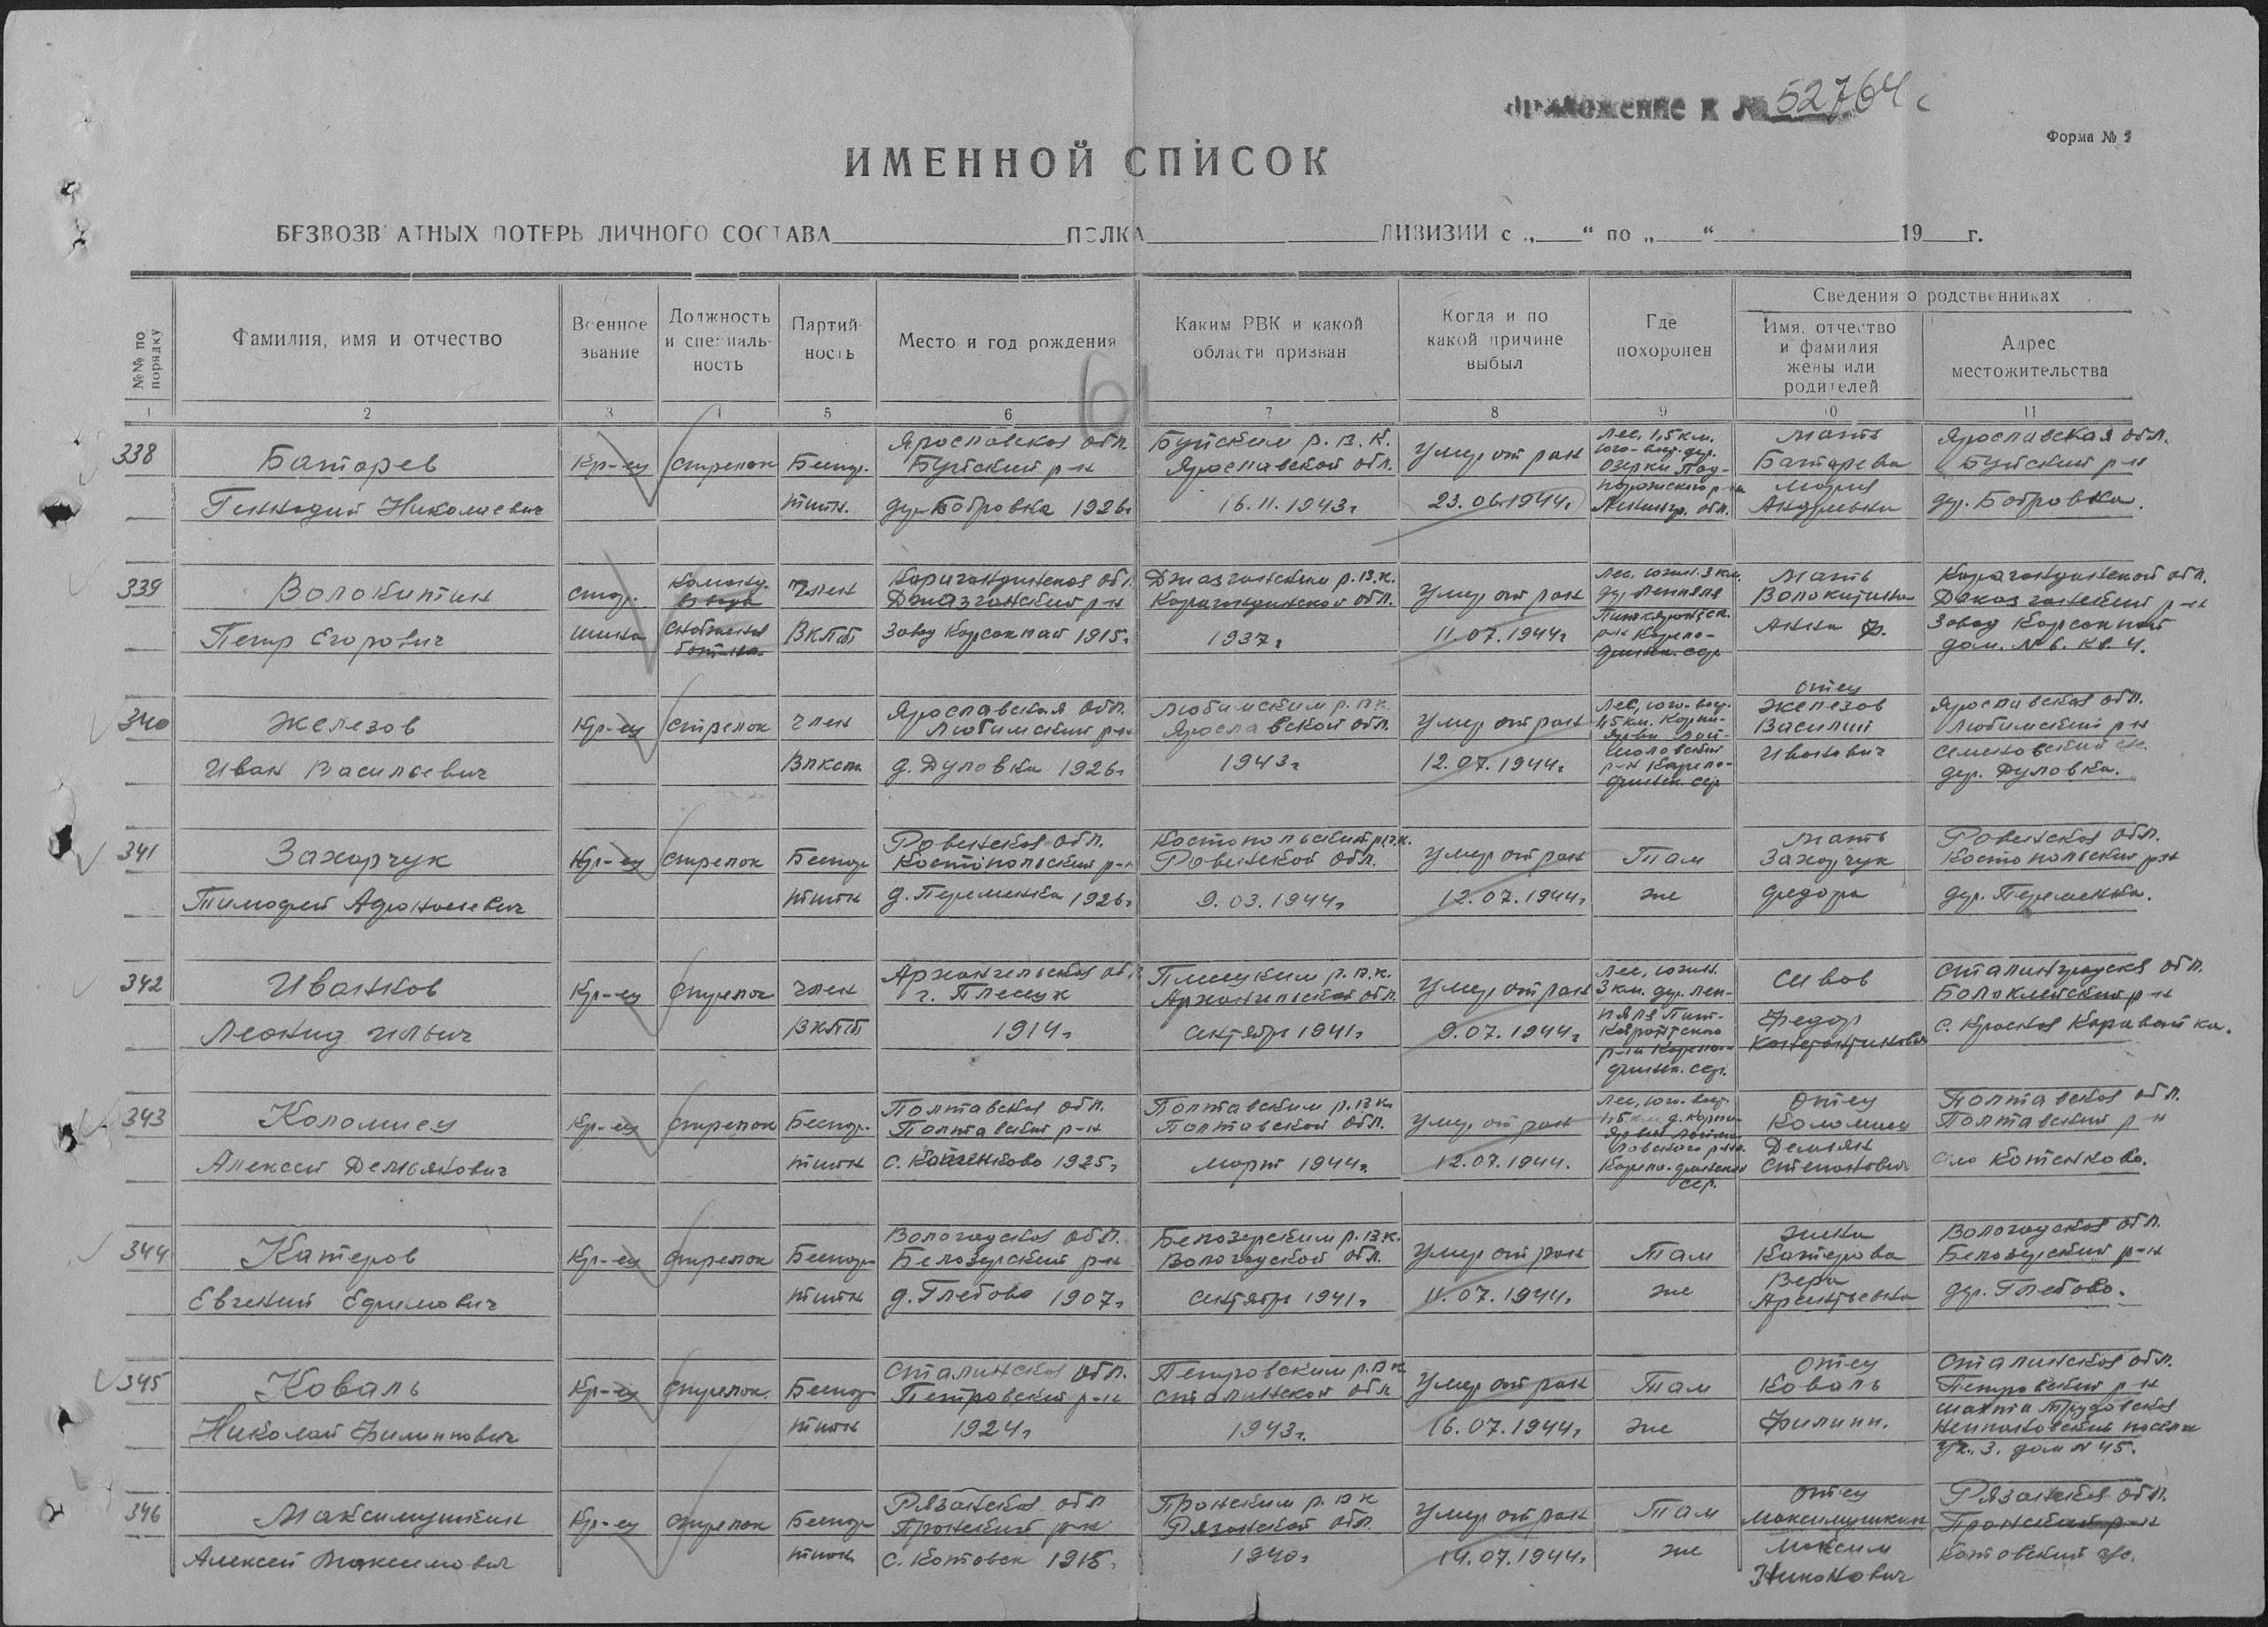 приложение к № 52764с
Форма № 2
ИМЕННОЙ СПИСОК
БЕЗВОЗВРАТНЫХ ПОТЕРЬ ЛИЧНОГО СОСТАВА ПОЛКА ДИВИЗИИ с „ “ по „ “ 19 г.
№№ по порядку
Фамилия, имя и отчество
Военное звание
Должность и специальность
Партийность
Место и год рождения
Каким РВК и какой области призван
Когда и по какой причине выбыл
Где похоронен
Сведения о родственниках
Имя, отчество и фамилия жены или родителей
Адрес местожительства
1 2 3 4 5 6 7 8 9 10 11
338
Батарев
Геннадий Николаевич
Кр-ец
стрелок
Беспартийн.
Ярославская обл.
Буйский р-н
дер. Бобровка 1926г
Буйским р.в.к.
Ярославской обл.
16.11.1943г
Умер от ран
23.06.1944г
Лес, 1,5 км.
юго-вост. дер.
Озерки Под-
порожского р-на
Ленингр. обл.
Мать
Батарева
Мария
Андреевна
Ярославская обл.
Буйский р-н
дер. Бобровка.
339
Волокитин
Петр Егорович
стар-
шина
Команд.
взвода
снабжения
бат-на
Член
ВКПб
Карагандинская обл.
Джазганский р-н
Завод Карсакпай 1915г
Джазганским р.в.к.
Карагандинской обл.
1937г
Умер от ран
11.07.1944г
Лес, южн. 3 км.
р-н Карело-
финск. сср
Мать
Волокитина
Анна Ф.
Карагандинской обл.
Джазганский р-н
Завод Карсакпай
дом. № 6. кв. 4.
340
Железов
Иван Васильевич
Кр-ец
стрелок
член
Влксм
Ярославская обл.
Любимский р-н
д. Дуловка 1926г
Любимским р.в.к.
Ярославской обл.
1943г
Умер от ран
12.07.1944г
Лес, юго-вост.
р-н Карело-
финск. сср
отец
Железов
Василий
Иванович
Ярославская обл.
Любимский р-н
Семеновский с/с.
дер. Дуловка.
341
Захарчук
Тимофей
Кр-ец
стрелок
Беспартийн
Ровенская обл.
Костопольский р-н
д. Перменка 1926г
Костопольский р.в.к.
Ровенской обл.
9.03.1944г
Умер от ран
12.07.1944г
Там
же
Мать
Захарчук
Федора
Ровенская обл.
Костопольский р-н
дер. Перменка.
342
Иванков
Леонид Ильич
Кр-ец
стрелок
член
ВКПб
Архангельская обл.
г. Плесцк
1914г
Плесцким р.в.к.
Архангельской обл.
Сентябрь 1941г
Умер от ран
9.07.1944г
Лес, южн.
3 км. дер. Леп-
р-н Карело-
финск. сср.
Сивов
Федор
Константинович
Сталинградская обл.
Балаклейский р-н
с. Красная Каравайка.
343
Коломиец
Алексей Демьянович
Кр-ец
стрелок
Беспартийн
Полтавская обл.
Полтавский р-н
1925г
Полтавским р.в.к.
Полтавской обл.
Март 1944г
Умер от ран
12.07.1944.
Лес, юго-вост.
Карело-финской
сср.
Отец
Коломиец
Демьян
Степанович
Полтавская обл.
Полтавский р-н
село Котенково.
344
Катеров
Евгений Ефимович
Кр-ец
стрелок
Беспартийн
Вологодская обл.
Белозерский р-н
д. Глебово 1907г
Белозерским р.в.к.
Вологодской обл.
Сентябрь 1941г
Умер от ран
11.07.1944г
Там
же
Жена
Катерова
Вера
Арсентьевна
Вологодская обл.
Белозерский р-н
дер. Глебово.
345
Коваль
Николай Филиппович
Кр-ец
стрелок.
Беспартийн
Сталинская обл.
Петровский р-н
1924г
Петровским р.в.к
Сталинской обл
1943г.
Умер от ран
16.07.1944г
Там
же
Отец
Коваль
Филипп.
Сталинская обл.
Петровский р-н
шахта Трудовская
поселок
уч. 3. дом № 45.
346
Максимушкин
Алексей Максимович
Кр-ец
стрелок
Беспартийн
Рязанская обл
Пронский р-н
с. Котовск 1915г
Пронским р.в.к
Рязанской обл.
1940г
Умер от ран
14.07.1944г
Там
же
Отец
Максимушкин
Максим
Никонович
Рязанская обл.
Пронский р-н
Котовский с/с.